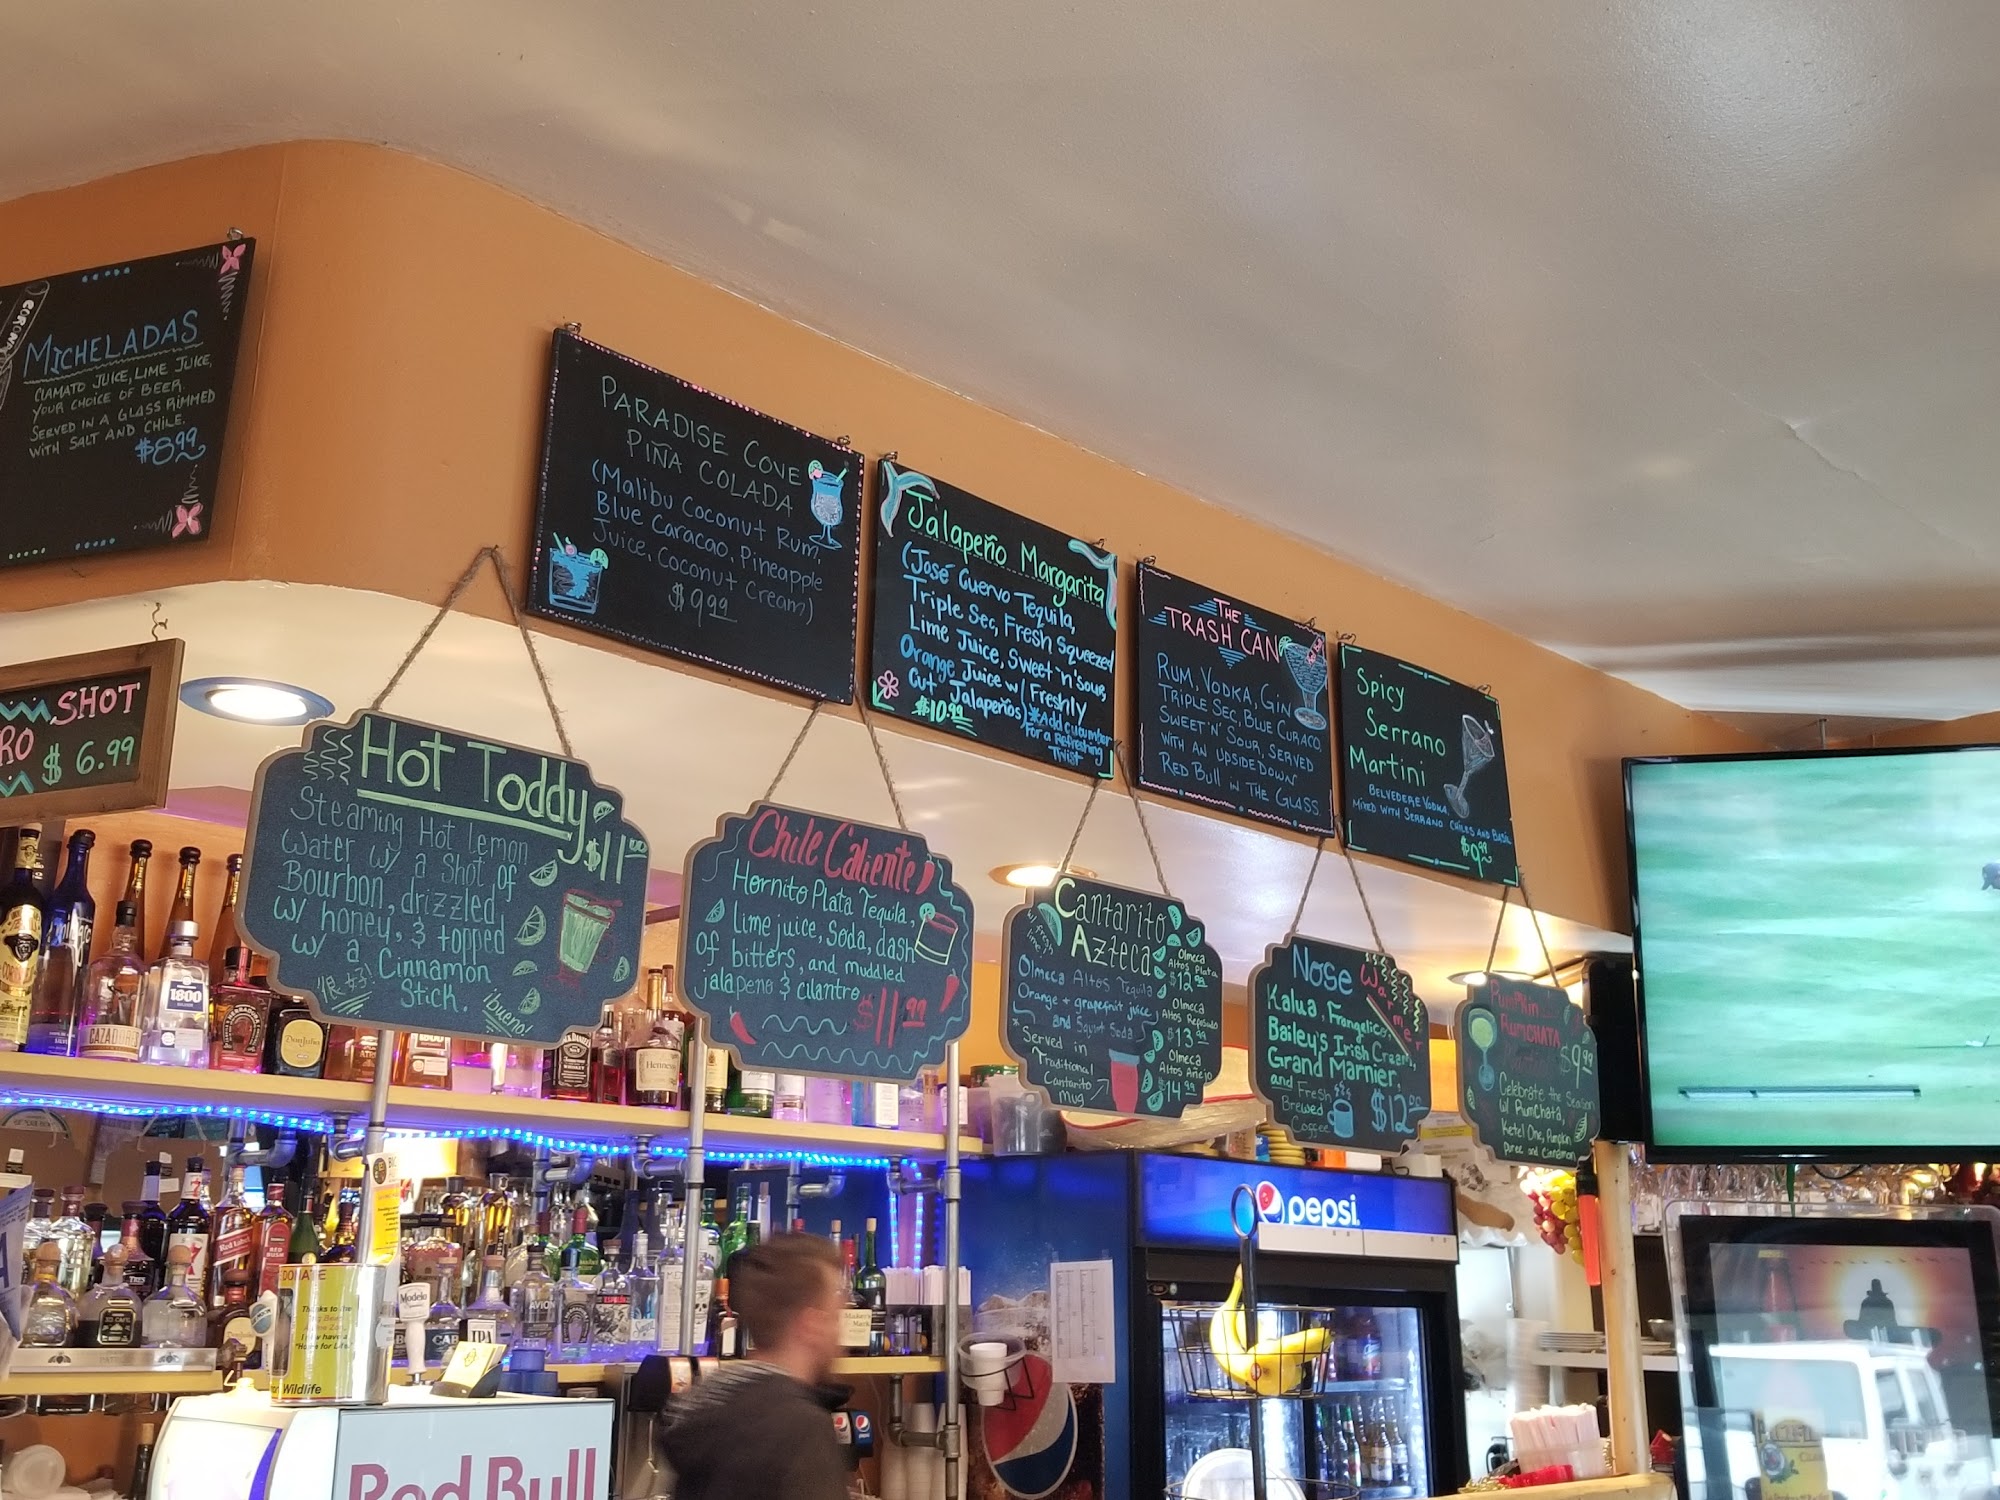 CORONA
MICHELADAS
CLAMATO JUICE, LIME JUICE,
YOUR CHOICE OF BEER.
SERVED IN A GLASS RIMMED
WITH SALT AND CHILE.
$8.99
SHOT
RO $ 6.99
PARADISE COVE
PIÑA COLADA
(Malibu Coconut Rum,
Blue Caracao, Pineapple
Juice, Coconut Cream)
$9.99
Jalapeño Margarita
(José Cuervo Tequila,
Triple Sec, Fresh Squeezed
Lime Juice, Sweet 'n' sour,
Orange Juice w/ Freshly
Cut Jalapeños)
$10.99
*Add cucumber
for a Refreshing
Twist
THE
TRASH CAN
RUM, VODKA, GIN
TRIPLE SEC, BLUE CURACO,
SWEET 'N' SOUR, SERVED
WITH AN UPSIDE DOWN
RED BULL IN THE GLASS.
Spicy
Serrano
Martini
BELVEDERE VODKA,
MIXED WITH SERRANO CHILES AND BASIL
$9.99
Hot Toddy
$11.00
Steaming Hot Lemon
Water w/ a Shot of
Bourbon, drizzled
w/ honey, & topped
w/ a Cinnamon
Stick.
¡bueno!
Chile Caliente
Hornito Plata Tequila,
lime juice, soda, dash
of bitters, and muddled
jalapeno & cilantro
$11.99
Cantarito
Azteca
w/ fresh
lime
Olmeca Altos Tequila
Orange + grapefruit juice,
and Squirt Soda
* Served in
Traditional
Cantarito
mug
Olmeca
Altos Plata
$12.99
Olmeca
Altos Reposado
$13.99
Olmeca
Altos Añejo
$14.99
Nose Warmer
Kalua, Frangelico,
Bailey's Irish Cream,
Grand Marnier,
and Fresh
Brewed
Coffee
$12.00
Pumpkin
RUMCHATA
$9.99
Celebrate the Season
w/ RumChata,
Ketel One, Pumpkin
Puree and Cinnamon
1800
CAZADORES
Don Julio
Hennessy
Red Label
RED
BUSH
DONATE
Thanks to the
I now have a
"Home for Life"
Wildlife
Modelo
IPA
AVION
Maker's
Mark
pepsi
Red Bull